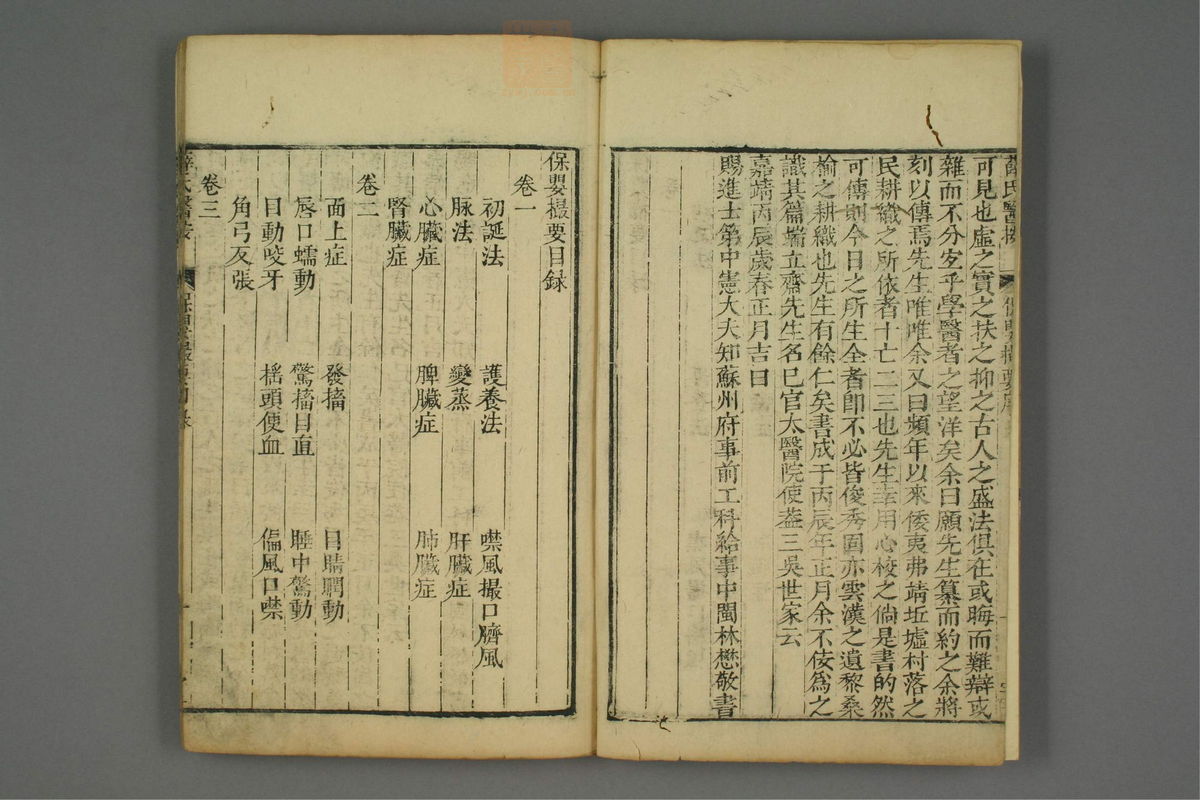 薛氏醫按
保嬰撮要序
可見也虛之實之扶之抑之古人之盛法俱在或晦而難辯或
雜而不分宐乎學醫者之望洋矣余曰願先生纂而約之余將
刻以傳焉先生唯唯余又曰頻年以來倭夷弗靖坵墟村落之
民耕織之所依者十亡二三也先生幸用心校之倘是書的然
可傳則今日之所生全者卽不必皆俊秀固亦雲漢之遺黎桑
榆之耕織也先生有餘仁矣書成于丙辰年正月余不佞爲之
識其篇端立齋先生名巳官太醫院使葢三吳世家云
嘉靖丙辰歲春正月吉日
賜進士第中憲大夫知蘇州府事前工科給事中閩林懋敬書
保嬰撮要目錄
卷一
初誕法 護養法 噤風撮口臍風
脉法 變蒸 肝臟症
心臟症 脾臟症 肺臟症
腎臟症
卷二
面上症 發搐 目睛瞤動
唇口蠕動 驚搐目直 睡中驚動
目動咬牙 搖頭便血 偏風口噤
角弓反張
卷三
薛氏醫按
保嬰撮要目錄